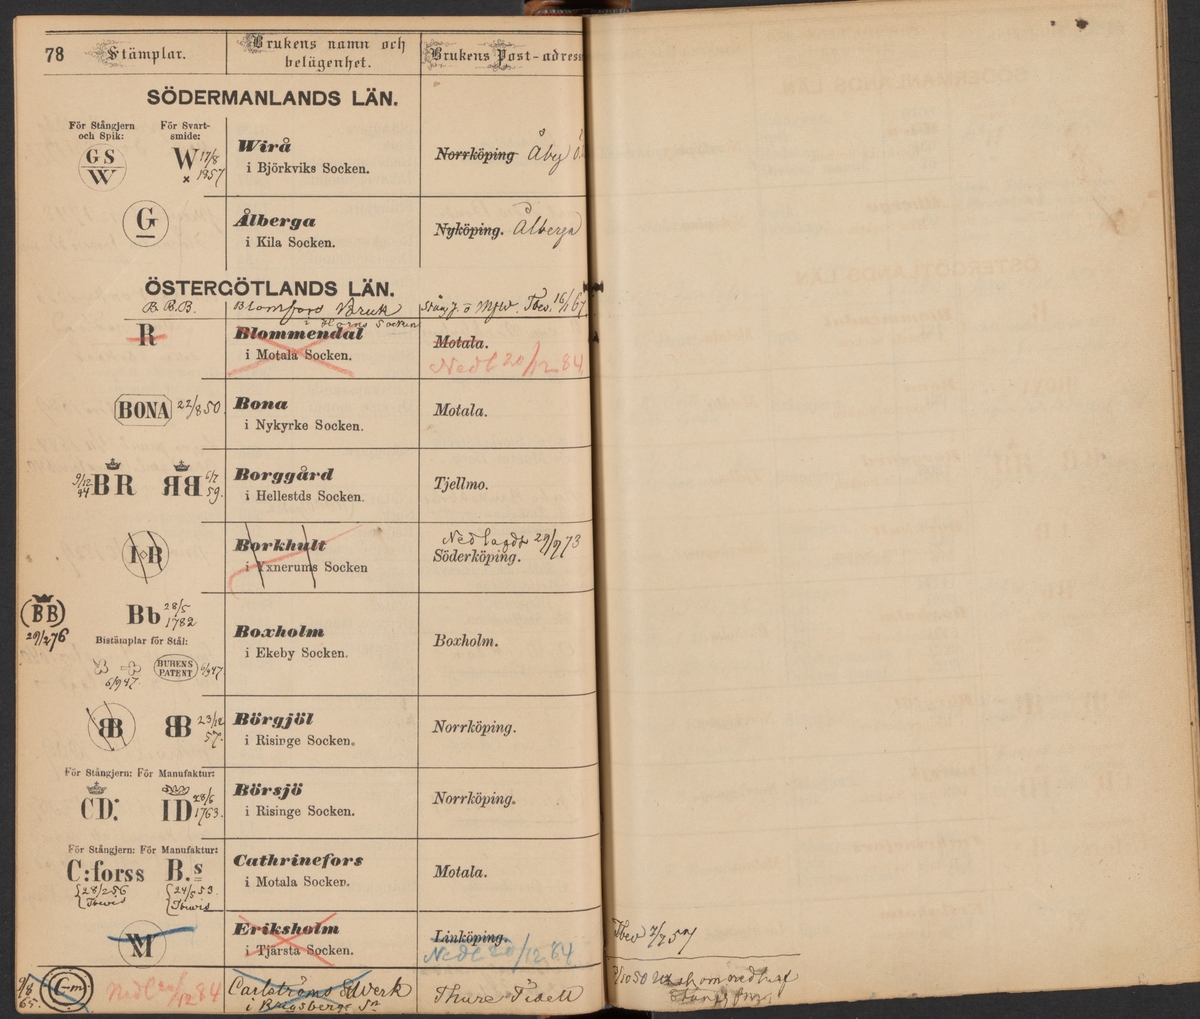 78
Stämplar.
Brukens namn och
belägenhet.
Brukens Post-adress
SÖDERMANLANDS LÄN.
För Stångjern
och Spik:
För Svart-
smide:
GS
W
W 17/8
x 1857
Wirå
i Björkviks Socken.
Norrköping Åby
G
Ålberga
i Kila Socken.
Nyköping. Ålberga
ÖSTERGÖTLANDS LÄN.
B.B.B.
Blomfors Bruk
i Horns Socken
R
Blommendal
i Motala Socken.
Motala.
Nedl 20/12 84.
BONA 22/8 50.
Bona
i Nykyrke Socken.
Motala.
9/12
44 BR
BB 6/7
59.
Borggård
i Hellestds Socken.
Tjellmo.
I◇B
Borkhult
i Yxnerums Socken
Nedlagdt 29/9 73
Söderköping.
BB
29/2 76
Bb 28/5
1782
Bistämplar för Stål:
BURENS
PATENT 6/9 47.
6/9 47.
Boxholm
i Ekeby Socken.
Boxholm.
BB
BB 23/12
57.
Börgjöl
i Risinge Socken.
Norrköping.
För Stångjern: För Manufaktur:
CD:
ID 28/6
1763.
Börsjö
i Risinge Socken.
Norrköping.
För Stångjern: För Manufaktur:
C:forss B.s
28/2 56
24/5 53.
Cathrinefors
i Motala Socken.
Motala.
M
Eriksholm
i Tjärsta Socken.
Linköping.
Nedl 20/12 84.
9/8
65.
C-m
Nedl 20/12 84
Carlströms Stålverk
Thure Fidell